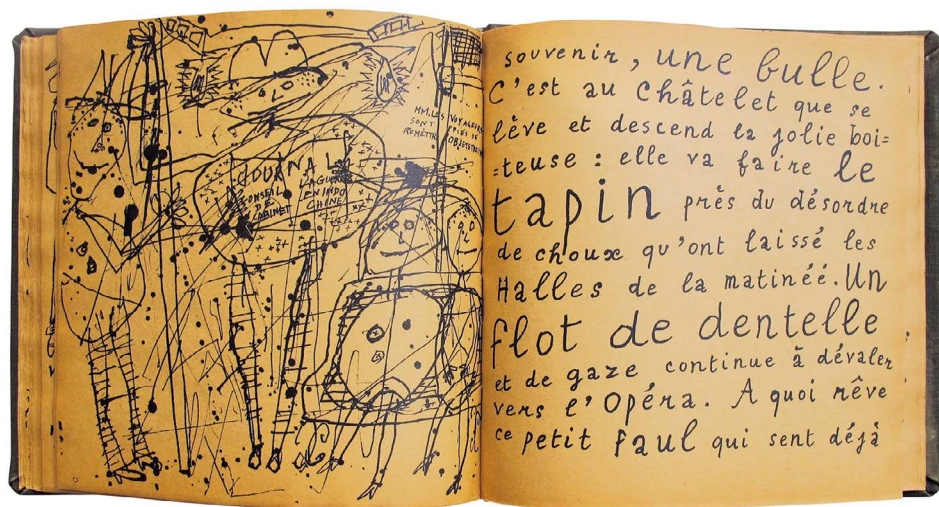 MM. LES VOYAGEURS
SONT PRIÉS DE
REMETTRE
JOURNAL
CONSEIL
DE
CABINET
LA GUERRE
EN INDO
CHINE
souvenir, une bulle.
C'est au Châtelet que se
lève et descend la jolie boi=
=teuse : elle va faire le
tapin près du désordre
de choux qu'ont laissé les
Halles de la matinéé. Un
flot de dentelle
et de gaze continue à dévaler
vers l'Opéra. A quoi rêve
ce petit faul qui sent déjà